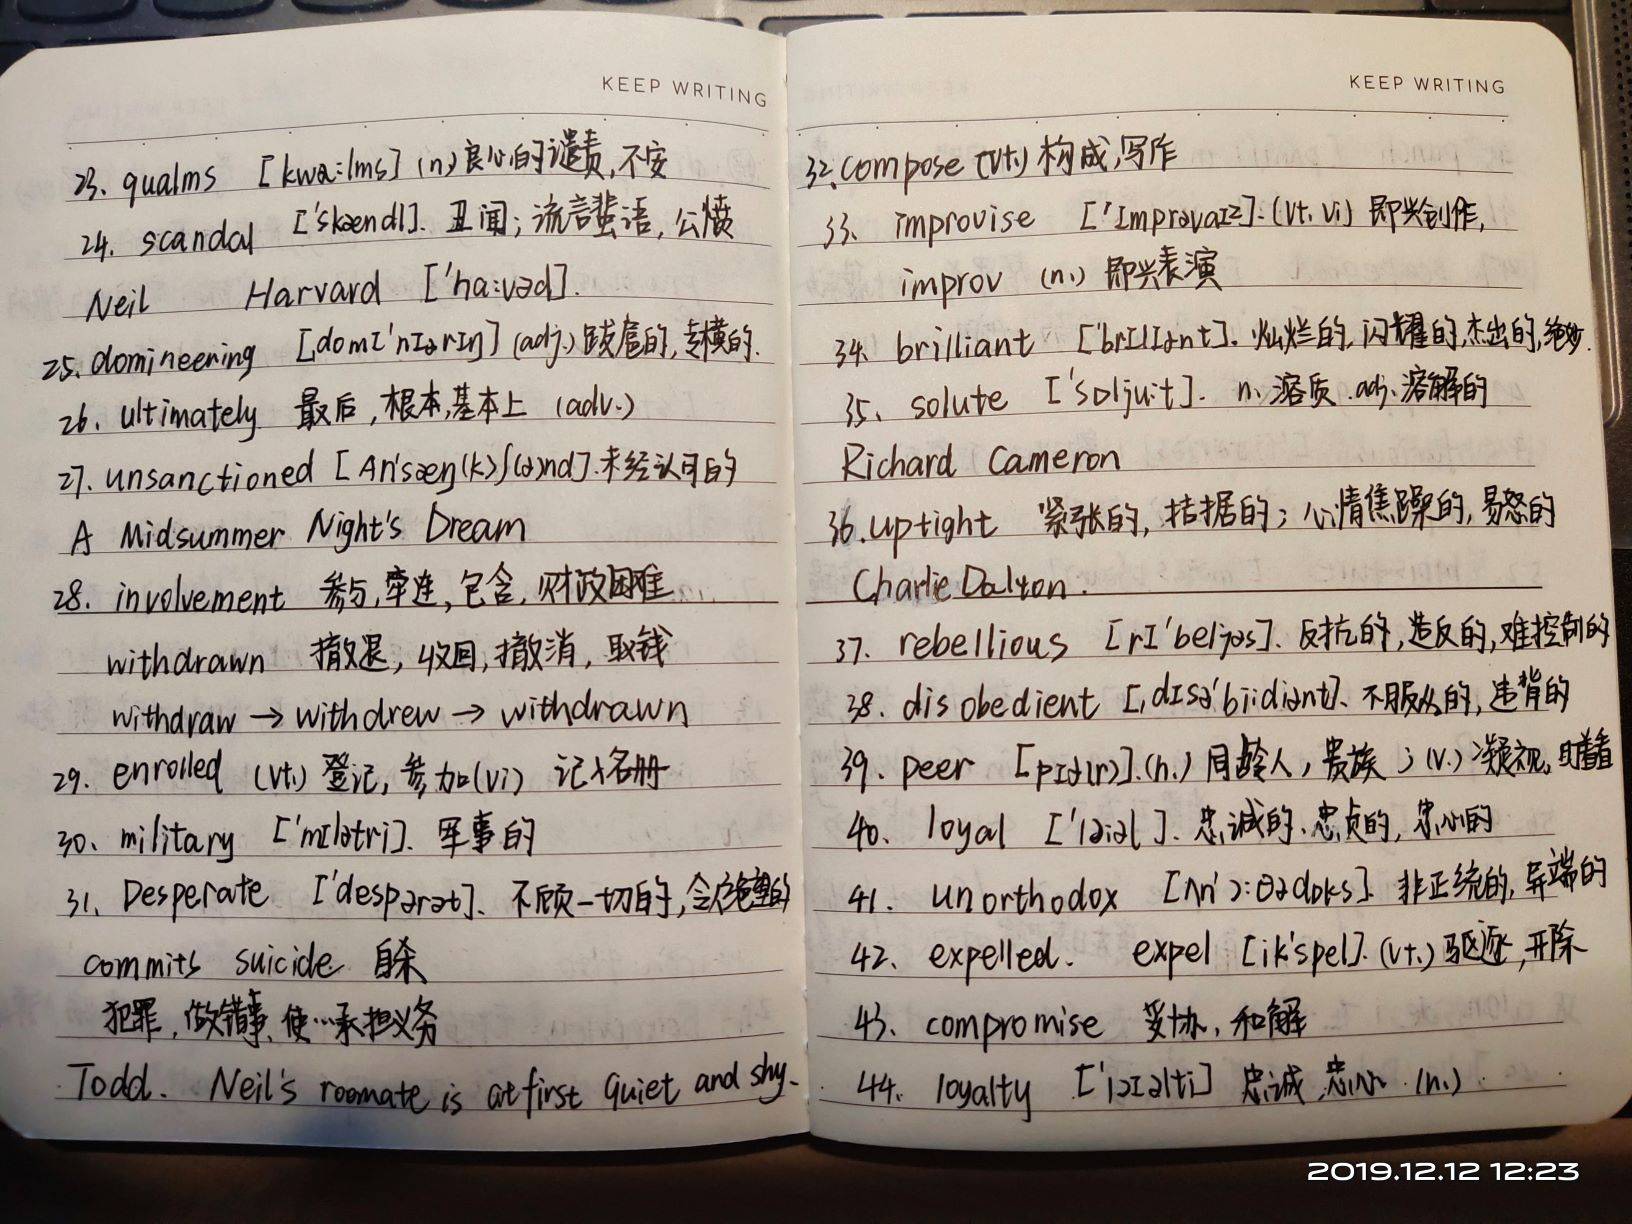 KEEP WRITING
23. qualms [kwɑ:lms] (n.) 良心的谴责, 不安
24. scandal ['skændl]. 丑闻; 流言蜚语, 公愤
Neil Harvard ['ha:vəd].
25. domineering [,dɒmɪ'nɪərɪŋ] (adj.) 跋扈的, 专横的.
26. ultimately 最后, 根本, 基本上 (adv.)
27. unsanctioned [ʌn'sæŋ(k)ʃ(ə)nd]. 未经认可的
A Midsummer Night's Dream
28. involvement 参与, 牵连, 包含, 财政困难
withdrawn 撤退, 收回, 撤消, 取钱
withdraw → withdrew → withdrawn
29. enrolled (vt.) 登记, 参加 (vi) 记入名册
30. military ['mɪlətri]. 军事的
31. Desperate ['despərət]. 不顾一切的, 令人绝望的
commits suicide 自杀
犯罪, 做错事, 使…承担义务
Todd. Neil's roomate is at first quiet and shy.
KEEP WRITING
32. compose (vt.) 构成, 写作
33. improvise ['ɪmprəvaɪz]. (vt. vi) 即兴创作,
improv (n.) 即兴表演
34. brilliant ['brɪlɪənt]. 灿烂的, 闪耀的, 杰出的, 绝妙.
35. solute ['sɒljuːt]. n. 溶质. adj. 溶解的
Richard Cameron
36. uptight 紧张的, 拮据的; 心情焦躁的, 易怒的
Charlie Dalton.
37. rebellious [rɪ'beljəs]. 反抗的, 造反的, 难控制的
38. disobedient [,dɪsə'biːdiənt]. 不服从的, 违背的
39. peer [pɪə(r)]. (n.) 同龄人, 贵族; (v.) 凝视, 盯着看
40. loyal ['lɔiəl]. 忠诚的, 忠贞的, 忠心的
41. unorthodox [ʌn'ɔ:θədɒks]. 非正统的, 异端的
42. expelled. expel [ik'spel]. (vt.) 驱逐, 开除
43. compromise 妥协, 和解
44. loyalty ['lɔɪəlti] 忠诚, 忠心 (n.)
2019.12.12 12:23